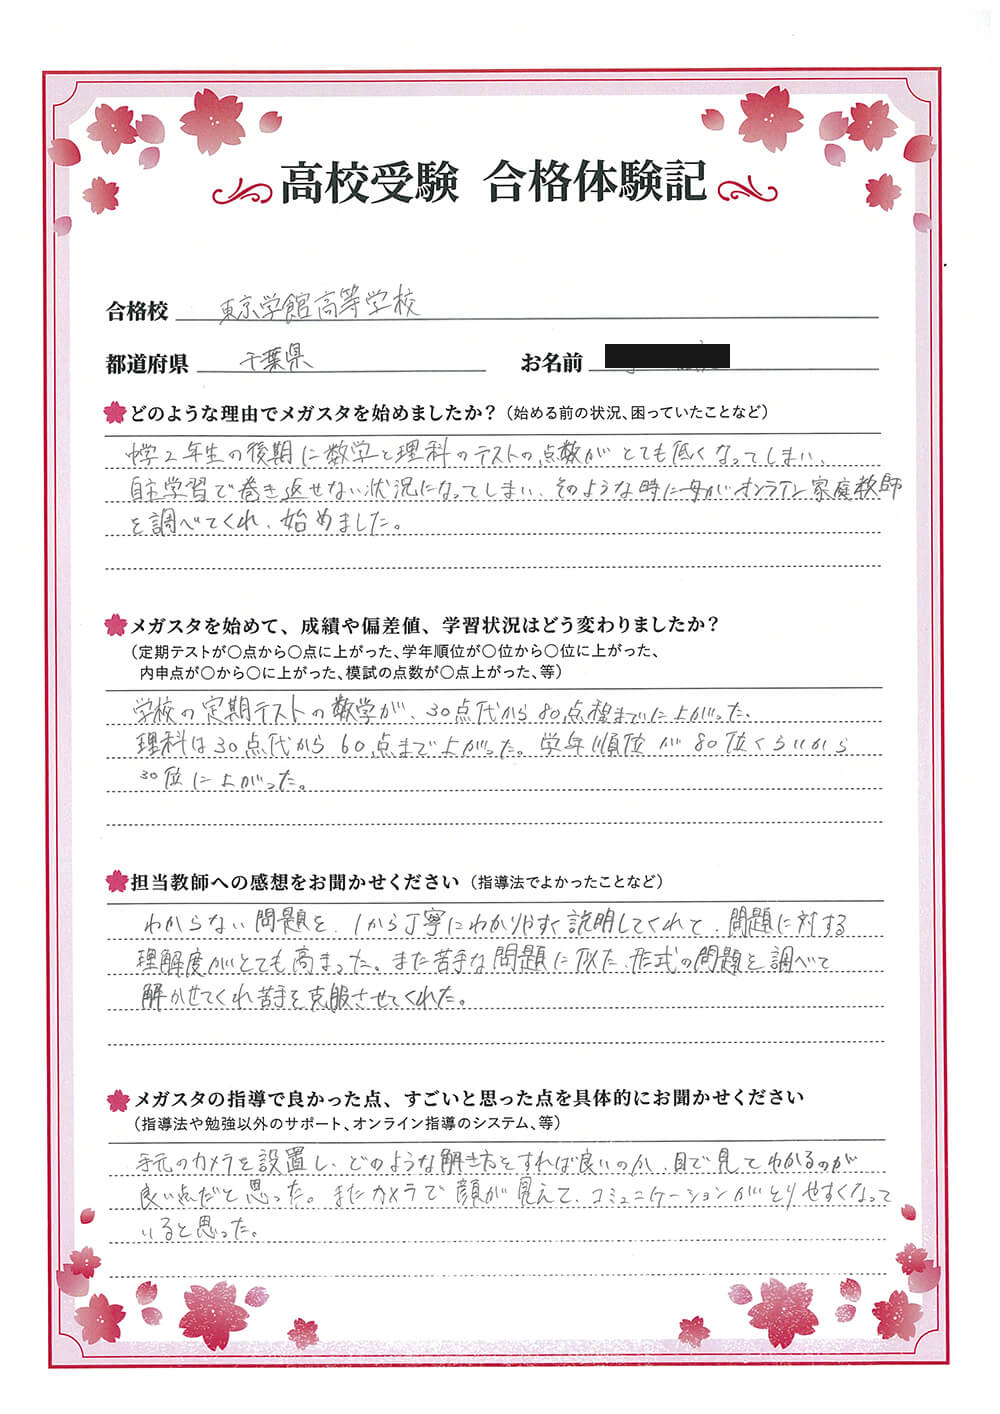 高校受験 合格体験記
合格校 東京学館高等学校
都道府県 千葉県 お名前
どのような理由でメガスタを始めましたか？（始める前の状況、困っていたことなど）
中学2年生の後期に数学と理科のテストの点数がとても低くなってしまい、
自主学習で巻き返せない状況になってしまい、そのような時に母がオンライン家庭教師
を調べてくれ、始めました。
メガスタを始めて、成績や偏差値、学習状況はどう変わりましたか？
（定期テストが〇点から〇点に上がった、学年順位が〇位から〇位に上がった、
内申点が〇から〇に上がった、模試の点数が〇点上がった、等）
学校の定期テストの数学が、30点代から80点程までに上がった、
理科は30点代から60点まで上がった。学年順位が80位くらいから
30位に上がった。
担当教師への感想をお聞かせください（指導法でよかったことなど）
わからない問題を、1から丁寧にわかりやすく説明してくれて、問題に対する
理解度がとても高まった。また苦手な問題に似た、形式の問題を調べて
解かせてくれ苦手を克服させてくれた。
メガスタの指導で良かった点、すごいと思った点を具体的にお聞かせください
（指導法や勉強以外のサポート、オンライン指導のシステム、等）
手元のカメラを設置し、どのような解き方をすれば良いのか、目で見てわかるのが
良い点だと思った。またカメラで顔が見えて、コミュニケーションがとりやすくなって
いると思った。